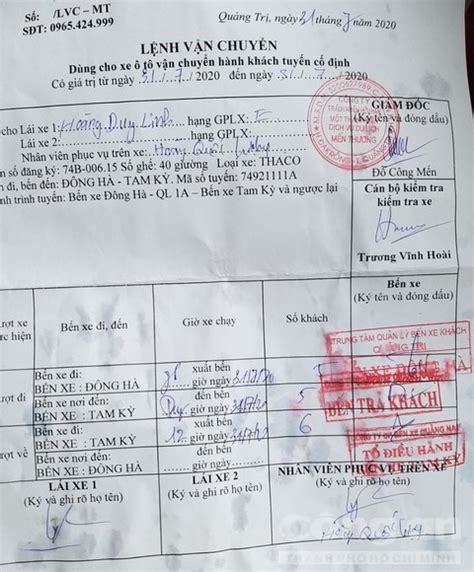 Số: /LVC – MT
SĐT: 0965.424.999
Quảng Trị, ngày 31 tháng 7 năm 2020
LỆNH VẬN CHUYỂN
Dùng cho xe ô tô vận chuyển hành khách tuyến cố định
Có giá trị từ ngày 31/7/2020 đến ngày 31/7/2020
cho Lái xe 1: Hoàng Duy Linh hạng GPLX: E
Lái xe 2: hạng GPLX:
Nhân viên phục vụ trên xe:
n số đăng ký: 74B-006.15 Số ghế: 40 giường Loại xe: THACO
n đi, bến đến: ĐÔNG HÀ - TAM KỲ. Mã số tuyến: 74921111A
nh trình tuyến: Bến xe Đông Hà - QL 1A – Bến xe Tam Kỳ và ngược lại
GIÁM ĐỐC
(Ký tên và đóng dấu)
CÔNG TY
DỊCH VỤ DU LỊCH
MẾN THƯƠNG
Đỗ Công Mến
Cán bộ kiểm tra
kiểm tra xe
Trương Vĩnh Hoài
ượt xe
ực hiện
Bến xe đi, đến
Giờ xe chạy
Số khách
Bến xe
(Ký tên và đóng dấu)
ượt đi
Bến xe đi:
BẾN XE : ĐÔNG HÀ
xuất bến
giờ ngày 31/7/20
Bến xe nơi đến:
BẾN XE : TAM KỲ
đến bến
giờ ngày
TRUNG TÂM QUẢN LÝ BẾN XE KHÁCH
QUẢNG TRỊ
BẾN XE ĐÔNG HÀ
ĐẾN TRẢ KHÁCH
ượt về
Bến xe đi:
BẾN XE : TAM KỲ
xuất bến
12 giờ ngày
6
Bến xe nơi đến:
BẾN XE: ĐÔNG HÀ
đến bến
giờ ngày
CÔNG TY CP BẾN XE QUẢNG NAM
TỔ ĐIỀU HÀNH
LÁI XE 1
(Ký và ghi rõ họ tên)
LÁI XE 2
(Ký và ghi rõ họ tên)
NHÂN VIÊN PHỤC VỤ TRÊN XE
(Ký và ghi rõ họ tên)
THÀNH PHỐ HỒ CHÍ MINH